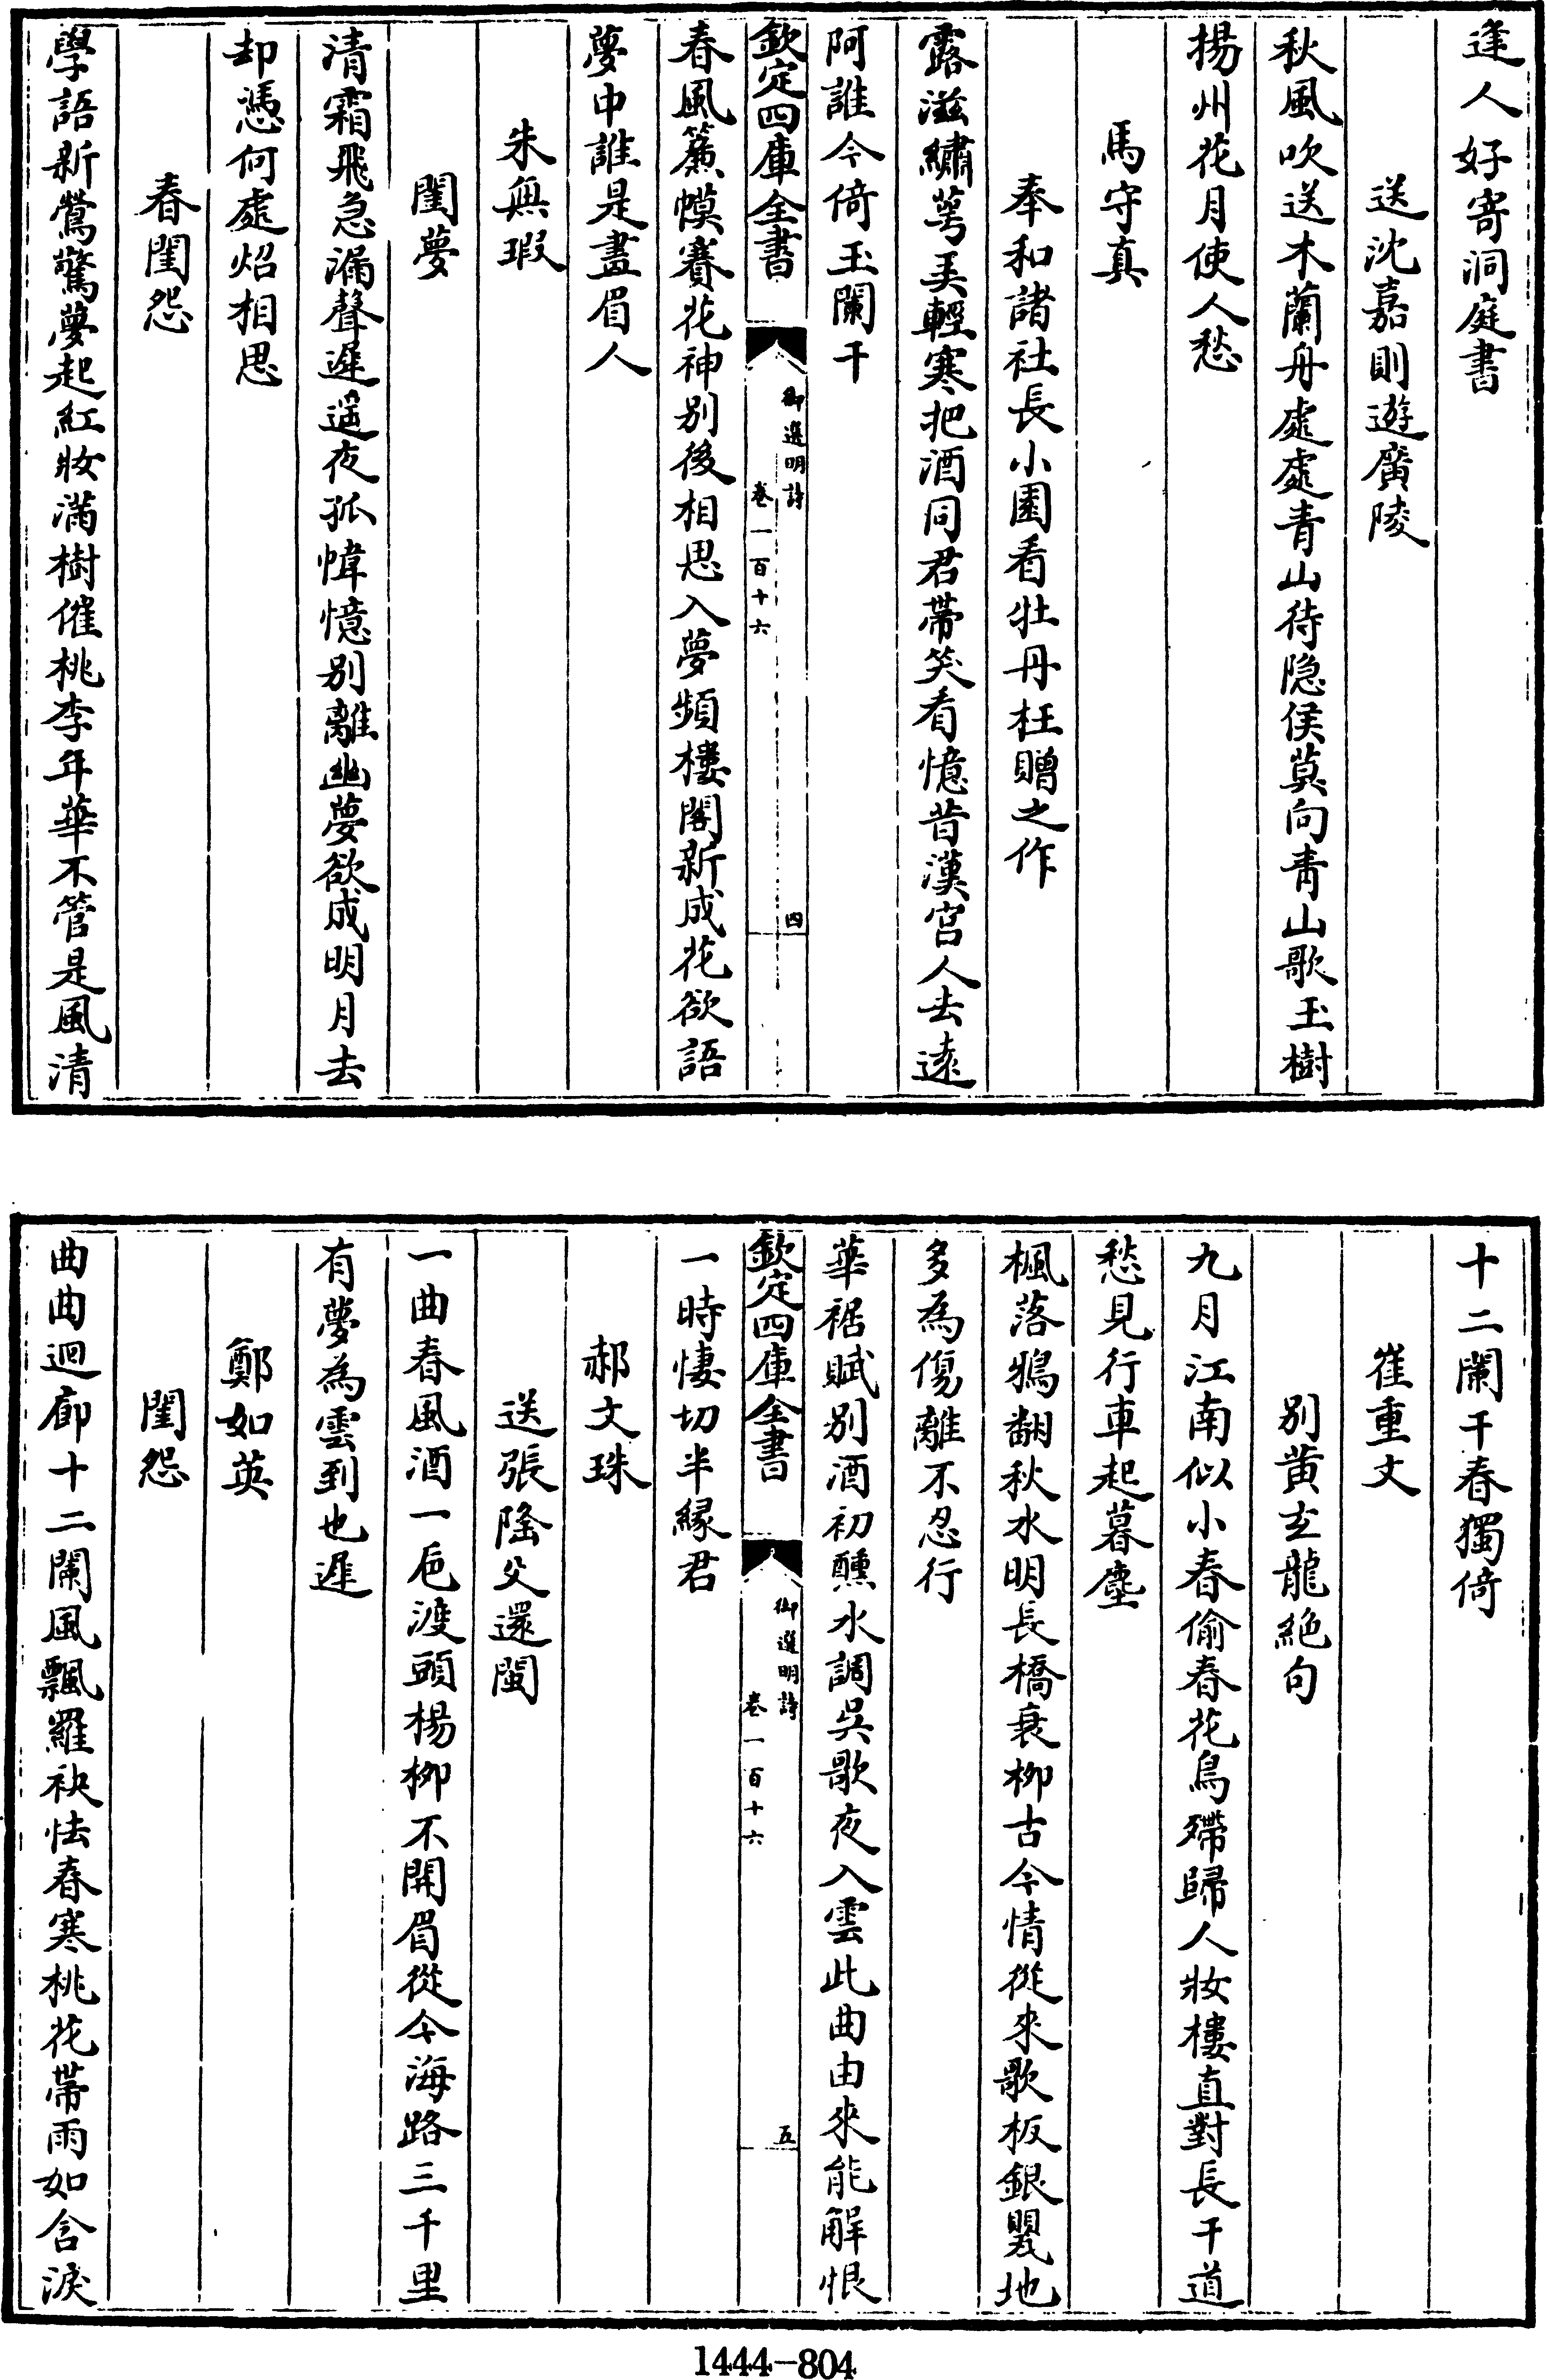 逢人好寄洞庭書
送沈嘉則遊廣陵
秋風吹送木蘭舟處處青山待隐侯莫向青山歌玉樹
揚州花月使人愁
馬守真
奉和諸社長小園看牡丹枉贈之作
露滋繡萼弄輕寒把酒同君帶笑看憶昔漢宫人去逺
阿誰今倚玉闌干
欽定四庫全書
御選明詩
卷一百十六
四
春風簾幙賽花神别後相思入夢頻樓閣新成花欲語
夢中誰是畫眉人
朱無瑕
閨夢
清霜飛急漏聲遲遥夜孤幃憶别離幽夢欲成明月去
却憑何處炤相思
春閨怨
學語新鶯驚夢起紅妝滿樹催桃李年華不管是風清
十二闌干春獨倚
崔重文
别黄玄龍絶句
九月江南似小春偷春花鳥殢歸人妝樓直對長干道
愁見行車起暮塵
楓落鴉翻秋水明長橋衰柳古今情從來歌板銀罌地
多為傷離不忍行
華裾賦别酒初醺水調吳歌夜入雲此曲由來能解恨
欽定四庫全書
御選明詩
卷一百十六
五
一時悽切半緣君
郝文珠
送張隆父還閩
一曲春風酒一巵渡頭楊柳不開眉從今海路三千里
有夢為雲到也遲
鄭如英
閨怨
曲曲迴廊十二闌風飄羅袂怯春寒桃花帶雨如含淚
1444-804